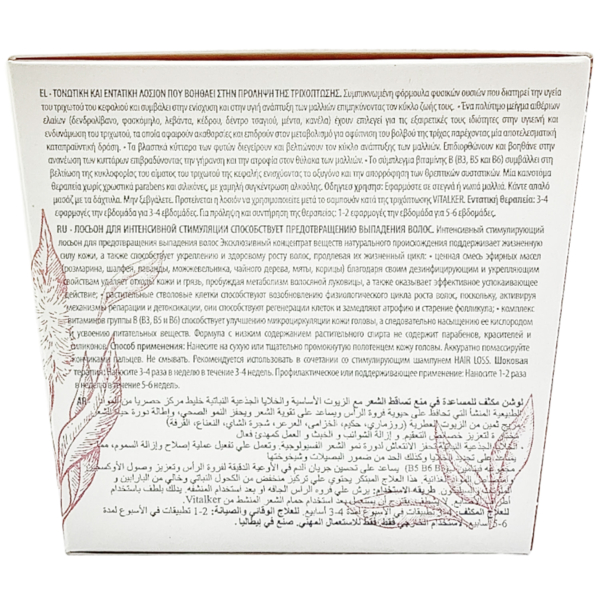 EL - ΤΟΝΩΤΙΚΗ ΚΑΙ ΕΝΤΑΤΙΚΗ ΛΟΣΙΟΝ ΠΟΥ ΒΟΗΘΑΕΙ ΣΤΗΝ ΠΡΟΛΗΨΗ ΤΗΣ ΤΡΙΧΟΠΤΩΣΗΣ. Συμπυκνωμένη φόρμουλα φυσικών ουσιών που διατηρεί την υγεία
του τριχωτού του κεφαλιού και συμβάλει στην ενίσχυση και στην υγιή ανάπτυξη των μαλλιών επιμηκύνοντας τον κύκλο ζωής τους. • Ένα πολύτιμο μείγμα αιθέριων
ελαίων (δενδρολίβανο, φασκόμηλο, λεβάντα, κέδρου, δέντρο τσαγιού, μέντα, κανέλα) έχουν επιλεγεί για τις εξαιρετικές τους ιδιότητες στην υγιεινή και
ενδυνάμωση του τριχωτού, τα οποία αφαιρούν ακαθαρσίες και επιδρούν στον μεταβολισμό για αφύπνιση του βολβού της τρίχας παρέχοντας μία αποτελεσματική
καταπραϋντική δράση. • Τα βλαστικά κύτταρα των φυτών διεγείρουν και βελτιώνουν τον κύκλο ανάπτυξης των μαλλιών. Επιδιορθώνουν και βοηθάνε στην
ανανέωση των κυττάρων επιβραδύνοντας την γήρανση και την ατροφία στον θύλακα των μαλλιών. • Το σύμπλεγμα βιταμίνης Β (Β3, Β5 και Β6) συμβάλλει στη
βελτίωση της κυκλοφορίας του αίματος του τριχωτού της κεφαλής ενισχύοντας το οξυγόνο και την απορρόφηση των θρεπτικών συστατικών. Μία καινοτόμα
θεραπεία χωρίς χρωστικά parabens και σιλικόνες, με χαμηλή συγκέντρωση αλκοόλης. Οδηγιεσ χρησησ: Εφαρμόστε σε στεγνά ή νωπά μαλλιά. Κάντε απαλό
μασάζ με τα δάχτυλα. Μην ξεβγάλετε. Προτείνεται η λοσιόν να χρησιμοποιείτε μετά το σαμπουάν κατά της τριχόπτωσης VITALKER. Εντατική θεραπεία: 3-4
εφαρμογές την εβδομάδα για 3-4 εβδομάδες. Για πρόληψη και συντήρηση της θεραπείας: 1-2 εφαρμογές την εβδομάδα για 5-6 εβδομάδες.
RU - ЛОСЬОН ДЛЯ ИНТЕНСИВНОЙ СТИМУЛЯЦИИ СПОСОБСТВУЕТ ПРЕДОТВРАЩЕНИЮ ВЫПАДЕНИЯ ВОЛОС. Интенсивный стимулирующий
лосьон для предотвращения выпадения волос Эксклюзивный концентрат веществ натурального происхождения поддерживает жизненную
силу кожи, а также способствует укреплению и здоровому росту волос, продлевая их жизненный цикл: • ценная смесь эфирных масел
(розмарина, шалфея, лаванды, можжевельника, чайного дерева, мяты, корицы) благодаря своим дезинфицирующим и укрепляющим
свойствам удаляет отходы кожи и грязь, пробуждая метаболизм волосяной луковицы, а также оказывает эффективное успокаивающее
действие; • растительные стволовые клетки способствуют возобновлению физиологического цикла роста волос, поскольку, активируя
механизмы репарации и детоксикации, они способствуют регенерации клеток и замедляют атрофию и старение фолликула; • комплекс
витаминов группы В (В3, В5 и В6) способствует улучшению микроциркуляции кожи головы, а следовательно насыщению ее кислородом
и усвоению питательных веществ. Формула с низким содержанием растительного спирта не содержит парабенов, красителей и
силиконов. Способ применения: Нанесите на сухую или тщательно промокнутую полотенцем кожу головы. Аккуратно помассируйте
кончиками пальцев. Не смывать. Рекомендуется использовать в сочетании со стимулирующим шампунем HAIR LOSS. Шоковая
терапия: Наносите 3-4 раза в неделю в течение 3-4 недель. Профилактическое или поддерживающее применение: Наносите 1-2 раза
в неделю в течение 5-6 недель.
AR - لوشن مكثف للمساعدة في منع تساقط الشعر مع الزيوت الأساسية والخلايا الجذعية النباتية خليط مركز حصريا من المواد
الطبيعية المنشأ التي تحافظ على حيوية فروة الرأس ويساعد على تقوية الشعر ويحفز النمو الصحي، وإطالة دورة حياة الشعر
مزيج ثمين من الزيوت العطرية (روزماري، حكيم، الخزامى، العرعر، شجرة الشاي، النعناع، القرفة)
مختارة لتعزيز خصائص التعقيم و إزالة الشوائب و الخبث و العمل كمهدئ فعال